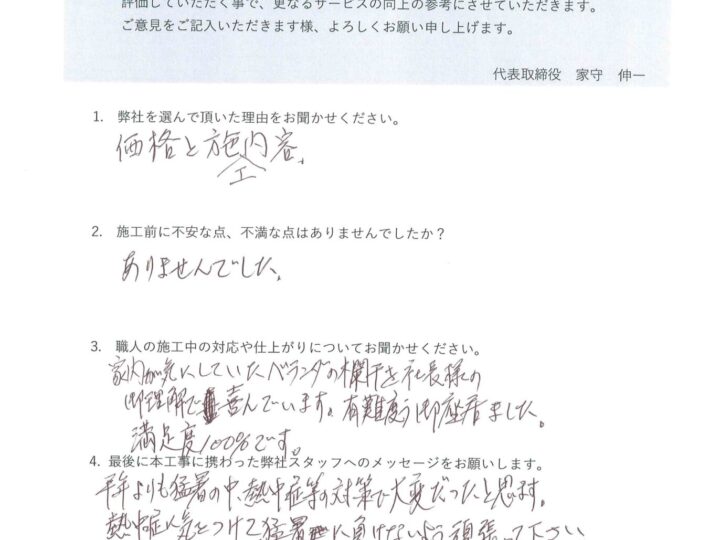 評価していただく事で、更なるサービスの向上の参考にさせていただきます。
ご意見をご記入いただきます様、よろしくお願い申し上げます。
代表取締役 家守 伸一
1. 弊社を選んで頂いた理由をお聞かせください。
価格と施工内容。
2. 施工前に不安な点、不満な点はありませんでしたか？
ありませんでした。
3. 職人の施工中の対応や仕上がりについてお聞かせください。
家内が気にしていたベランダの欄干を社長様の
御理解で喜んでいます。有難度う御座居ました。
満足度100%です。
4. 最後に本工事に携わった弊社スタッフへのメッセージをお願いします。
平年よりも猛暑の中、熱中症等の対策で大変だったと思ます。
熱中症に気をつけて猛暑に負けないよう頑張って下さい